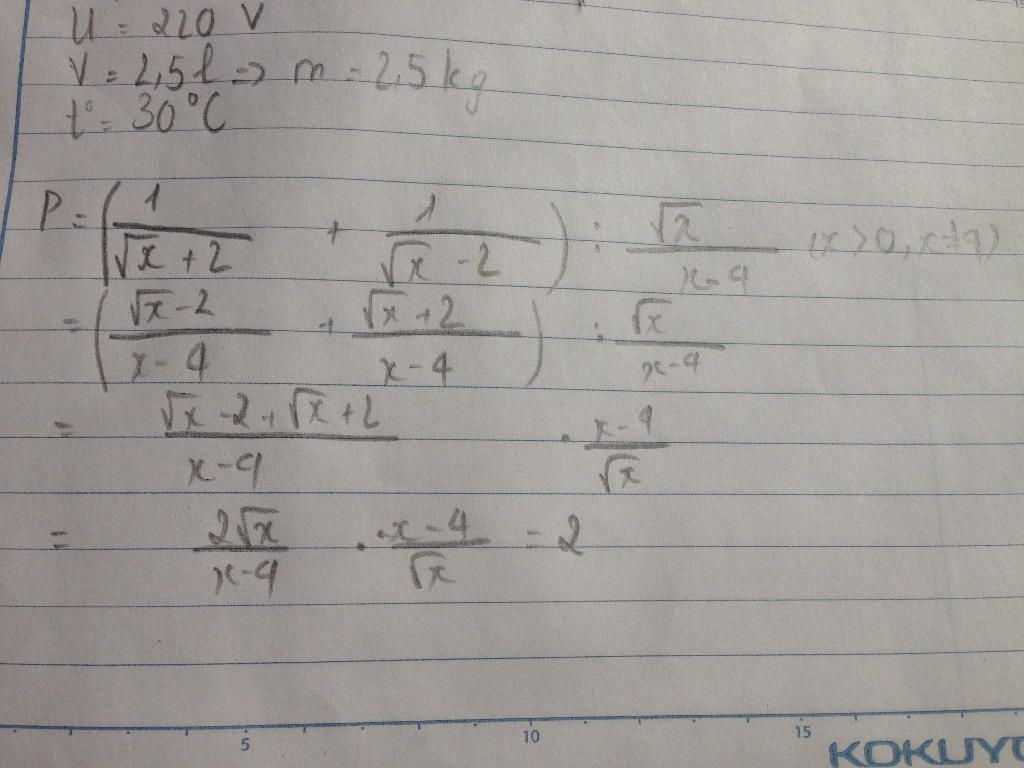 U = 220 V
V = 2,5 l => m = 2,5 kg
t° = 30°C
P = (1/(√x + 2) + 1/(√x - 2)) : √x/(x-4) (x > 0, x ≠ 4)
= ((√x - 2)/(x - 4) + (√x + 2)/(x - 4)) : √x/(x-4)
= (√x - 2 + √x + 2)/(x-4) · (x-4)/√x
= 2√x/(x-4) · (x-4)/√x = 2
5 10 15
KOKUYO